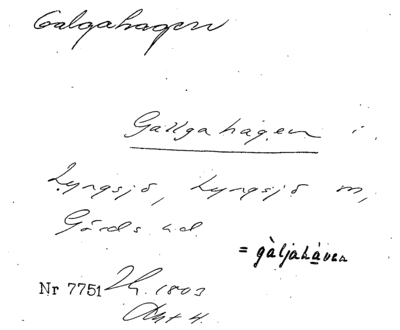 Galgahagen
Gallgahagen i
Lyngsjö, Lyngsjö m,
Gärds hd
= gàljahàvan
Nr 7751 Lh. 1803
Akt 4.